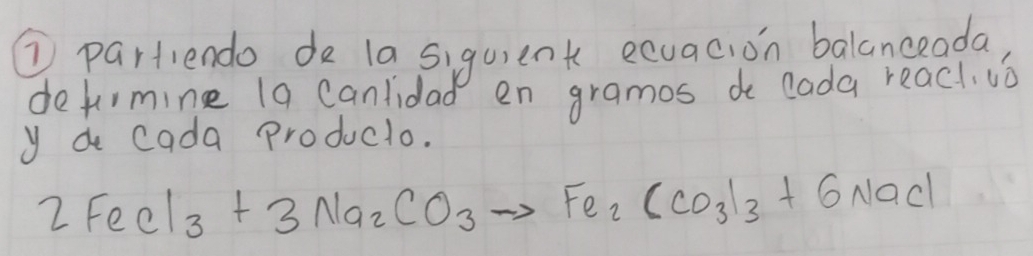 ① partiendo de la siguiente ecuación balanceada,
determine la cantidad en gramos de cada reactivo
y de cada Producto.
2 FeCl₃ + 3 Na₂CO₃ → Fe₂ (CO₃)₃ + 6 NaCl